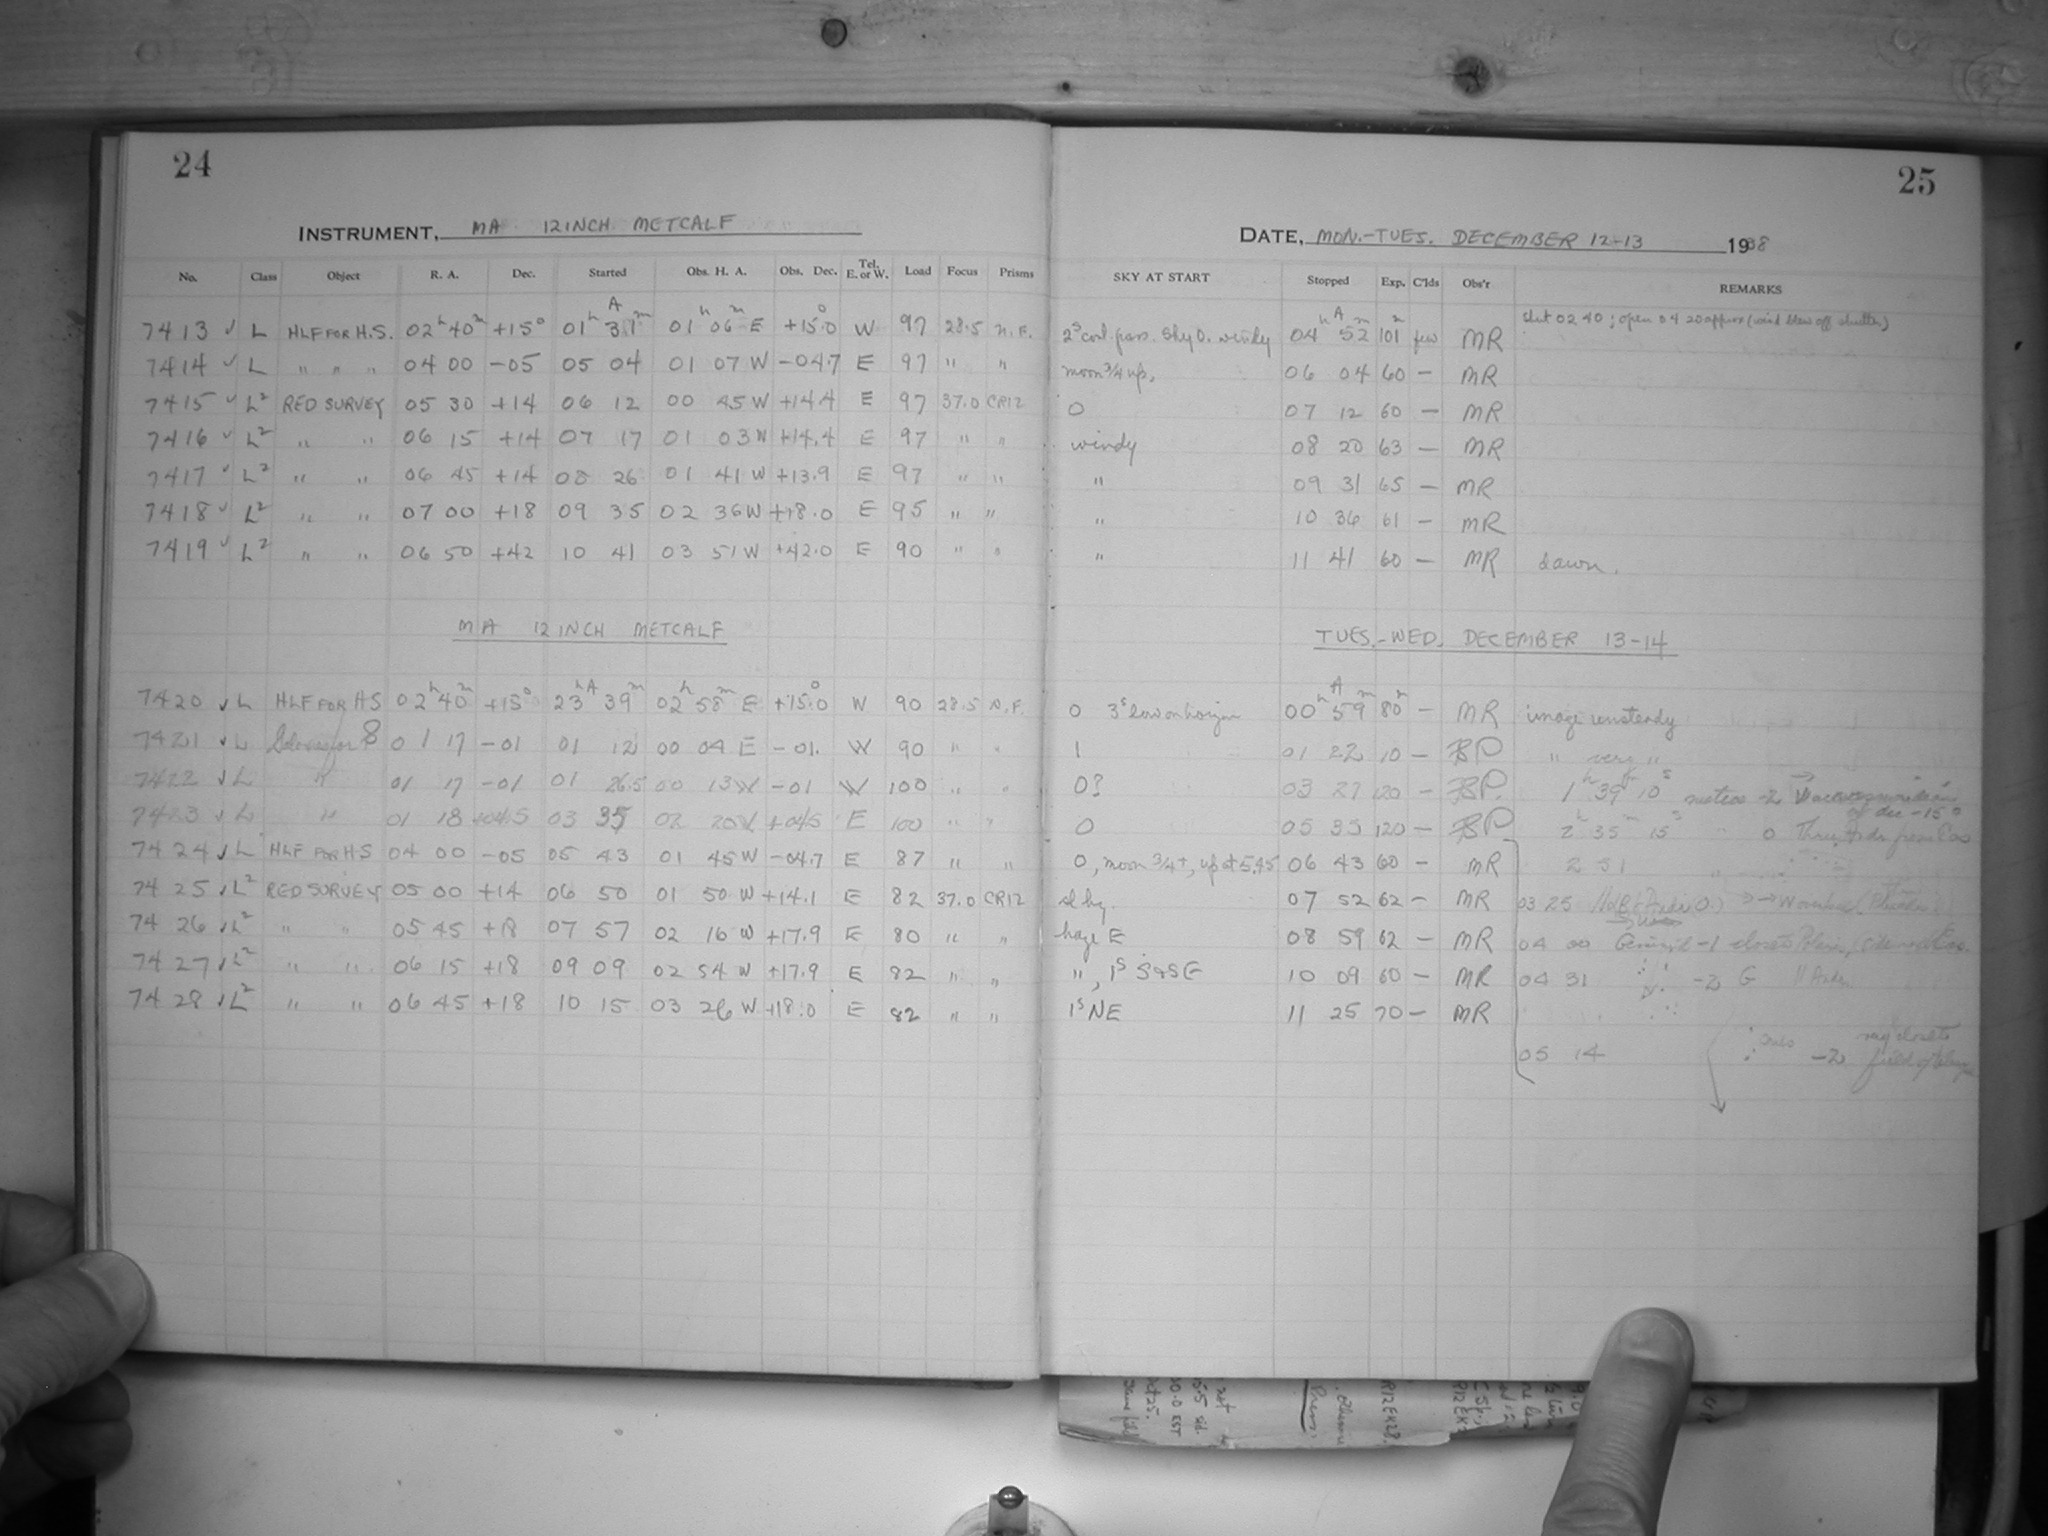 24
INSTRUMENT, MA 12 INCH METCALF
No. Class Object R. A. Dec. Started Obs. H. A. Obs. Dec. Tel. E. or W. Load Focus Prisms
7413 ✓ L HLF FOR H.S. 02ʰ 40ᵐ +15⁰ 01ʰ A 31ᵐ 01ʰ 06ᵐ E +15⁰.0 W 97 28.5 N.F.
7414 ✓ L " " " 04 00 -05 05 04 01 07 W -04.7 E 97 " "
7415 ✓ L² RED SURVEY 05 30 +14 06 12 00 45 W +14.4 E 97 37.0 CR12
7416 ✓ L² " " 06 15 +14 07 17 01 03 W +14.4 E 97 " "
7417 ✓ L² " " 06 45 +14 08 26 01 41 W +13.9 E 97 " "
7418 ✓ L² " " 07 00 +18 09 35 02 36 W +18.0 E 95 " "
7419 ✓ L² " " 06 50 +42 10 41 03 51 W +42.0 E 90 " "
MA 12 INCH METCALF
7420 ✓ L HLF FOR HS 02ʰ 40ᵐ +15⁰ 23ʰ A 39ᵐ 02ʰ 58ᵐ E +15⁰.0 W 90 28.5 N.F.
7421 ✓ L for 8 01 17 -01 01 12 00 04 E -01. W 90 " "
7422 ✓ L " 01 17 -01 01 26.5 00 13 W -01 W 100 " "
7423 ✓ L " 01 18 +045 03 35 02 20 W +045 E 100 " "
7424 ✓ L HLF FOR HS 04 00 -05 05 43 01 45 W -04.7 E 87 " "
7425 ✓ L² RED SURVEY 05 00 +14 06 50 01 50 W +14.1 E 82 37.0 CR12
7426 ✓ L² " " 05 45 +18 07 57 02 16 W +17.9 E 80 " "
7427 ✓ L² " " 06 15 +18 09 09 02 54 W +17.9 E 82 " "
7428 ✓ L² " " 06 45 +18 10 15 03 26 W +18.0 E 82 " "
25
DATE, MON.-TUES. DECEMBER 12-13 1938
SKY AT START Stopped Exp. C'lds Obs'r REMARKS
shut 02 40; open 04 20 approx (wind blew off shutter)
2ˢ Sky 0. windy 04ʰ A 52ᵐ 101ᵐ few MR
moon 3/4 up, 06 04 60 - MR
0 07 12 60 - MR
windy 08 20 63 - MR
" 09 31 65 - MR
" 10 36 61 - MR
" 11 41 60 - MR dawn.
TUES.-WED. DECEMBER 13-14
0 3ˢ low on horizon 00ʰ A 59ᵐ 80ᵐ - MR image unsteady
1 01 22 10 - BP " very "
0? 03 27 120 - BP. 1ʰ 39ᵐ 10ˢ meteor -2
of dec -15⁰
0 05 35 120 - BP 2ʰ 35ᵐ 15ˢ " 0
0, moon 3/4+, up at 5.45 06 43 60 - MR 2 51
sl hzy. 07 52 62 - MR 03 25
haze E 08 59 62 - MR 04 00 -1
", 1ˢ S & SE 10 09 60 - MR 04 31 -2 G
1ˢ NE 11 25 70 - MR
05 14 -2 field of